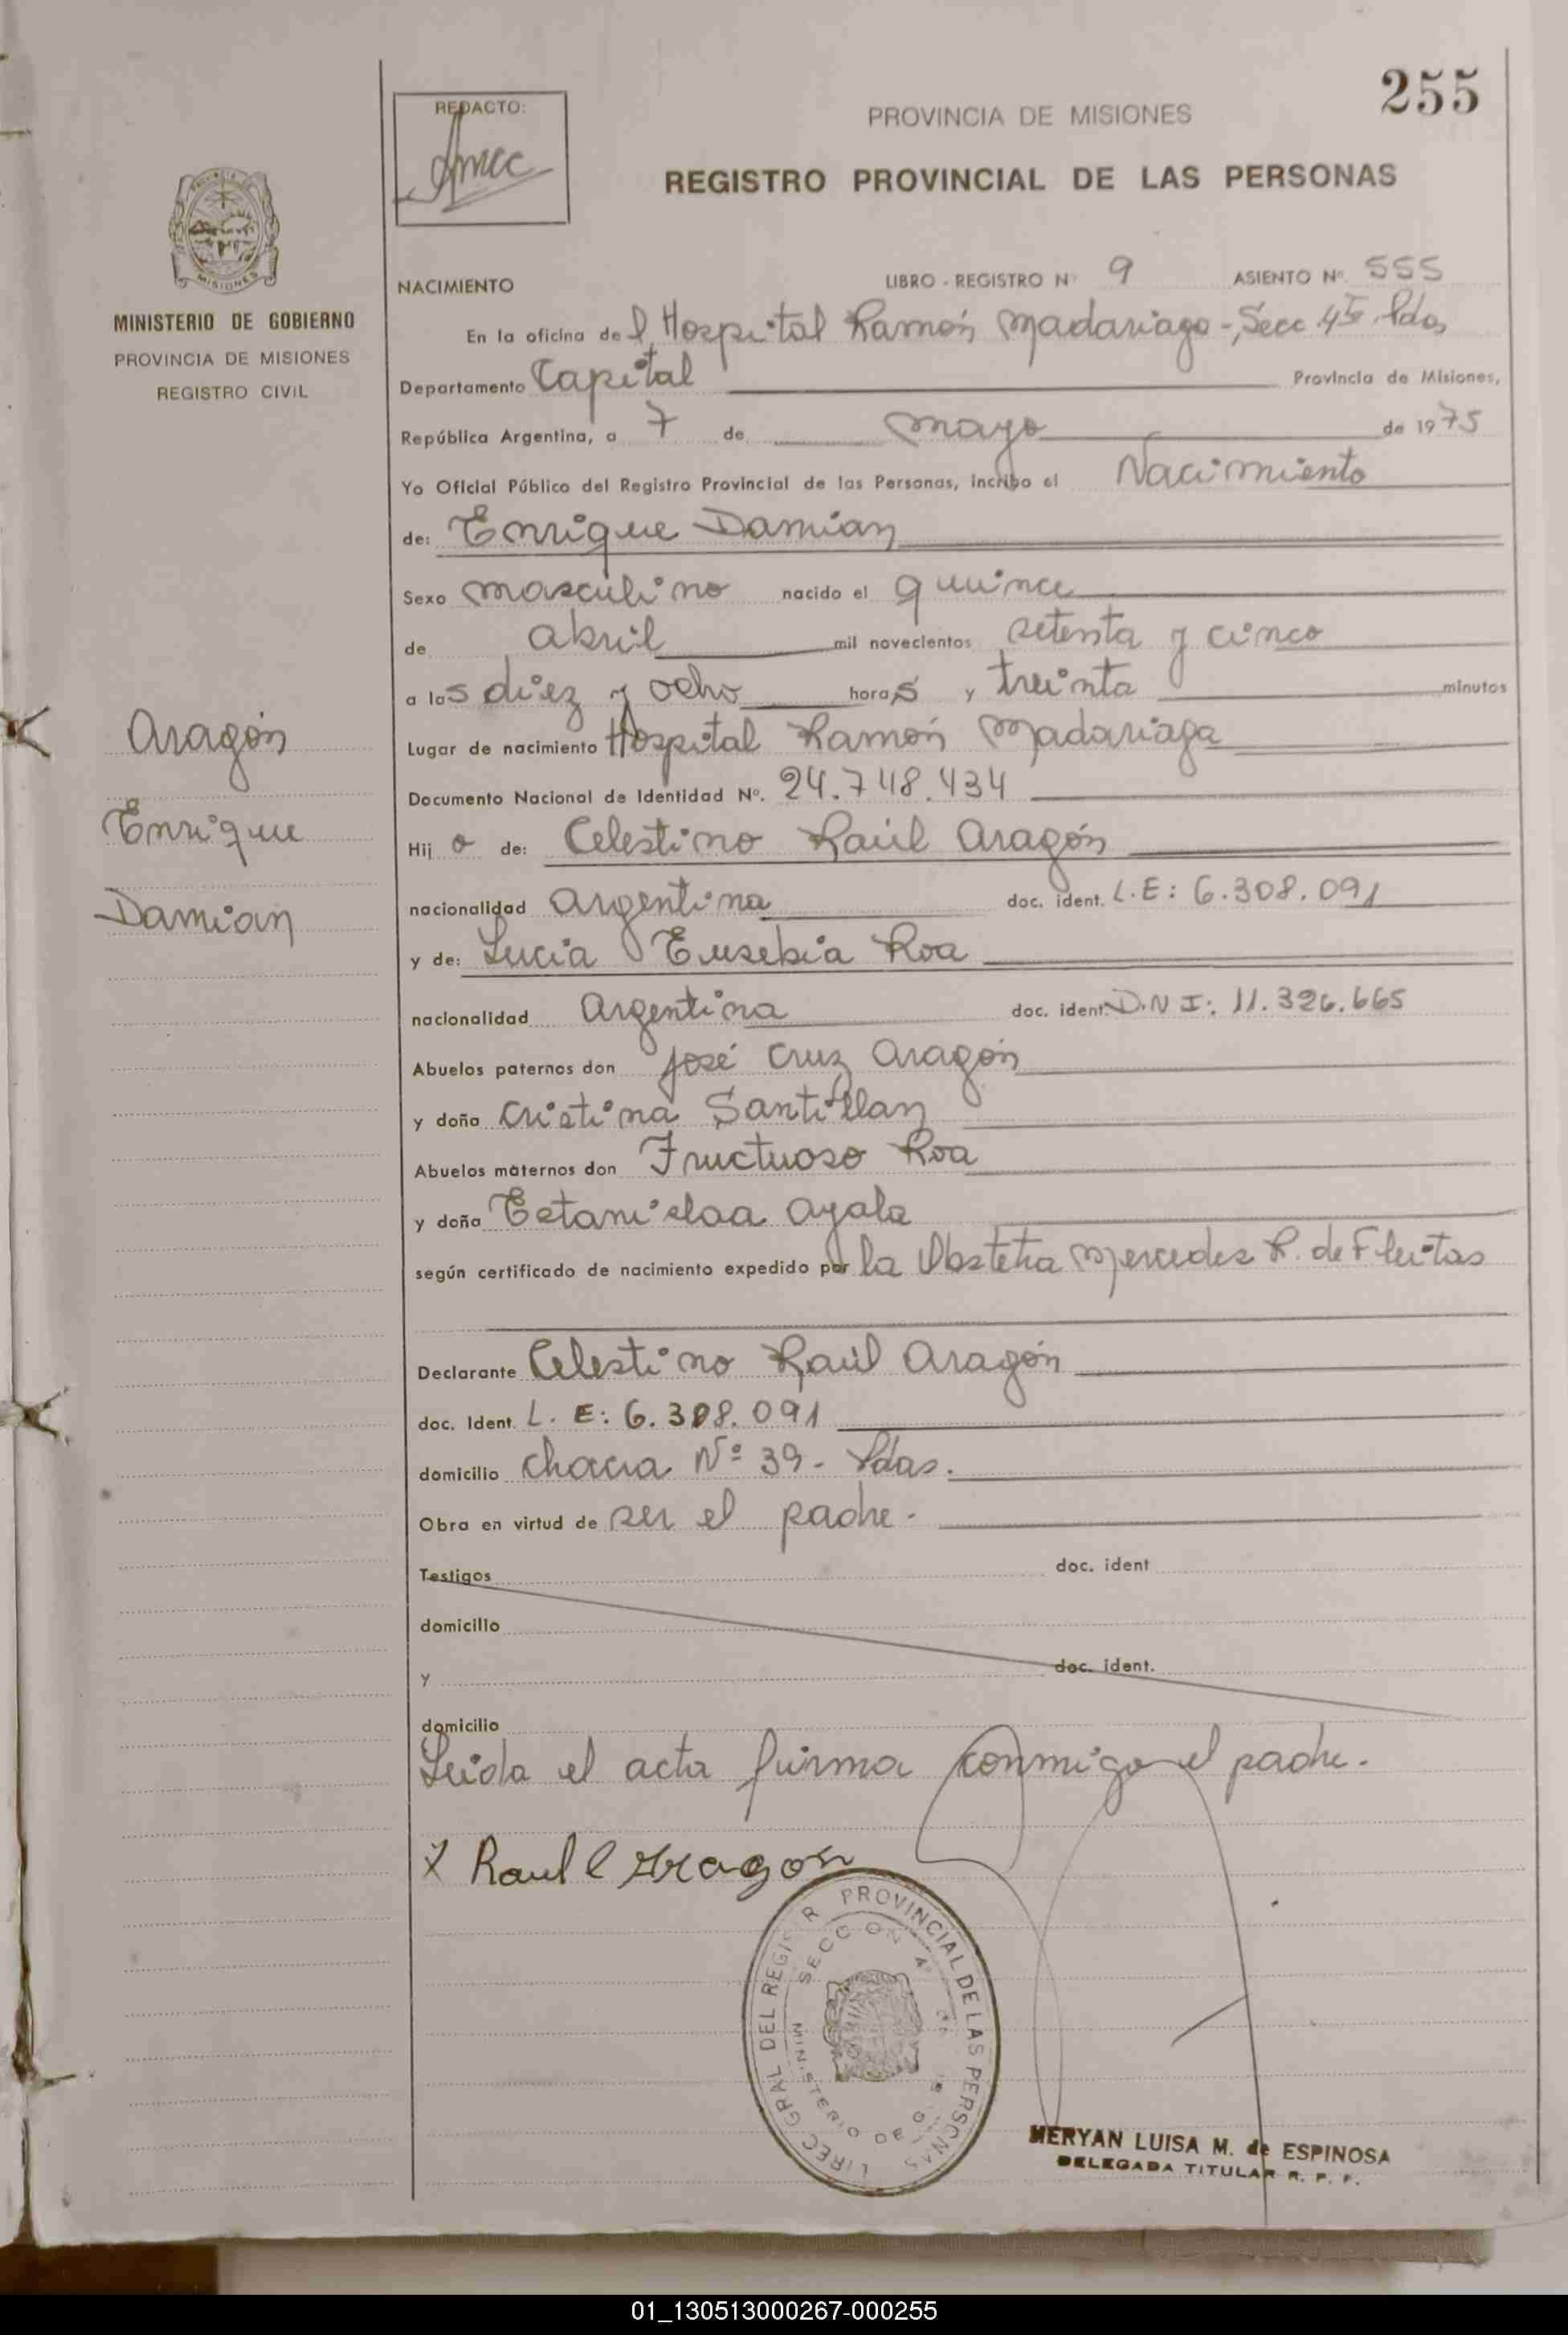 255
REDACTO:
PROVINCIA DE MISIONES
REGISTRO PROVINCIAL DE LAS PERSONAS
MISIONES
MINISTERIO DE GOBIERNO
PROVINCIA DE MISIONES
REGISTRO CIVIL
NACIMIENTO LIBRO - REGISTRO Nº 9 ASIENTO Nº 555
En la oficina del Hospital Ramón Madariaga - Secc. 4ta Pdas
Departamento Capital Provincia de Misiones,
República Argentina, a 7 de mayo de 1975
Yo Oficial Público del Registro Provincial de las Personas, incribo el Nacimiento
de: Enrique Damian
Sexo masculino nacido el quince
de abril mil novecientos setenta y cinco
a las diez y ocho horas y treinta minutos
Aragón
Enrique
Damian
Lugar de nacimiento Hospital Ramón Madariaga
Documento Nacional de Identidad Nº. 24.748.434
Hijo de: Celestino Raúl Aragón
nacionalidad Argentina doc. ident. L.E: 6.308.091
y de: Lucia Eusebia Roa
nacionalidad Argentina doc. ident. D.N I: 11.326.665
Abuelos paternos don José Cruz Aragón
y doña Cristina Santillan
Abuelos maternos don Fructuoso Roa
y doña Estanislaa Ayala
según certificado de nacimiento expedido por la Obstetra Mercedes R. de Fleitas
Declarante Celestino Raúl Aragón
doc. Ident. L. E: 6.308.091
domicilio chacra Nº 39 - Pdas.
Obra en virtud de ser el padre.
Testigos doc. ident
domicilio
y doc. ident.
domicilio
Leida el acta firma conmigo el padre.
X Raul C Aragon
DIREC GRAL DEL REGISTR PROVINCIAL DE LAS PERSONAS
SECCION 4ª
MINISTERIO DE G
MERYAN LUISA M. de ESPINOSA
DELEGADA TITULAR R. P. P.
01_130513000267-000255